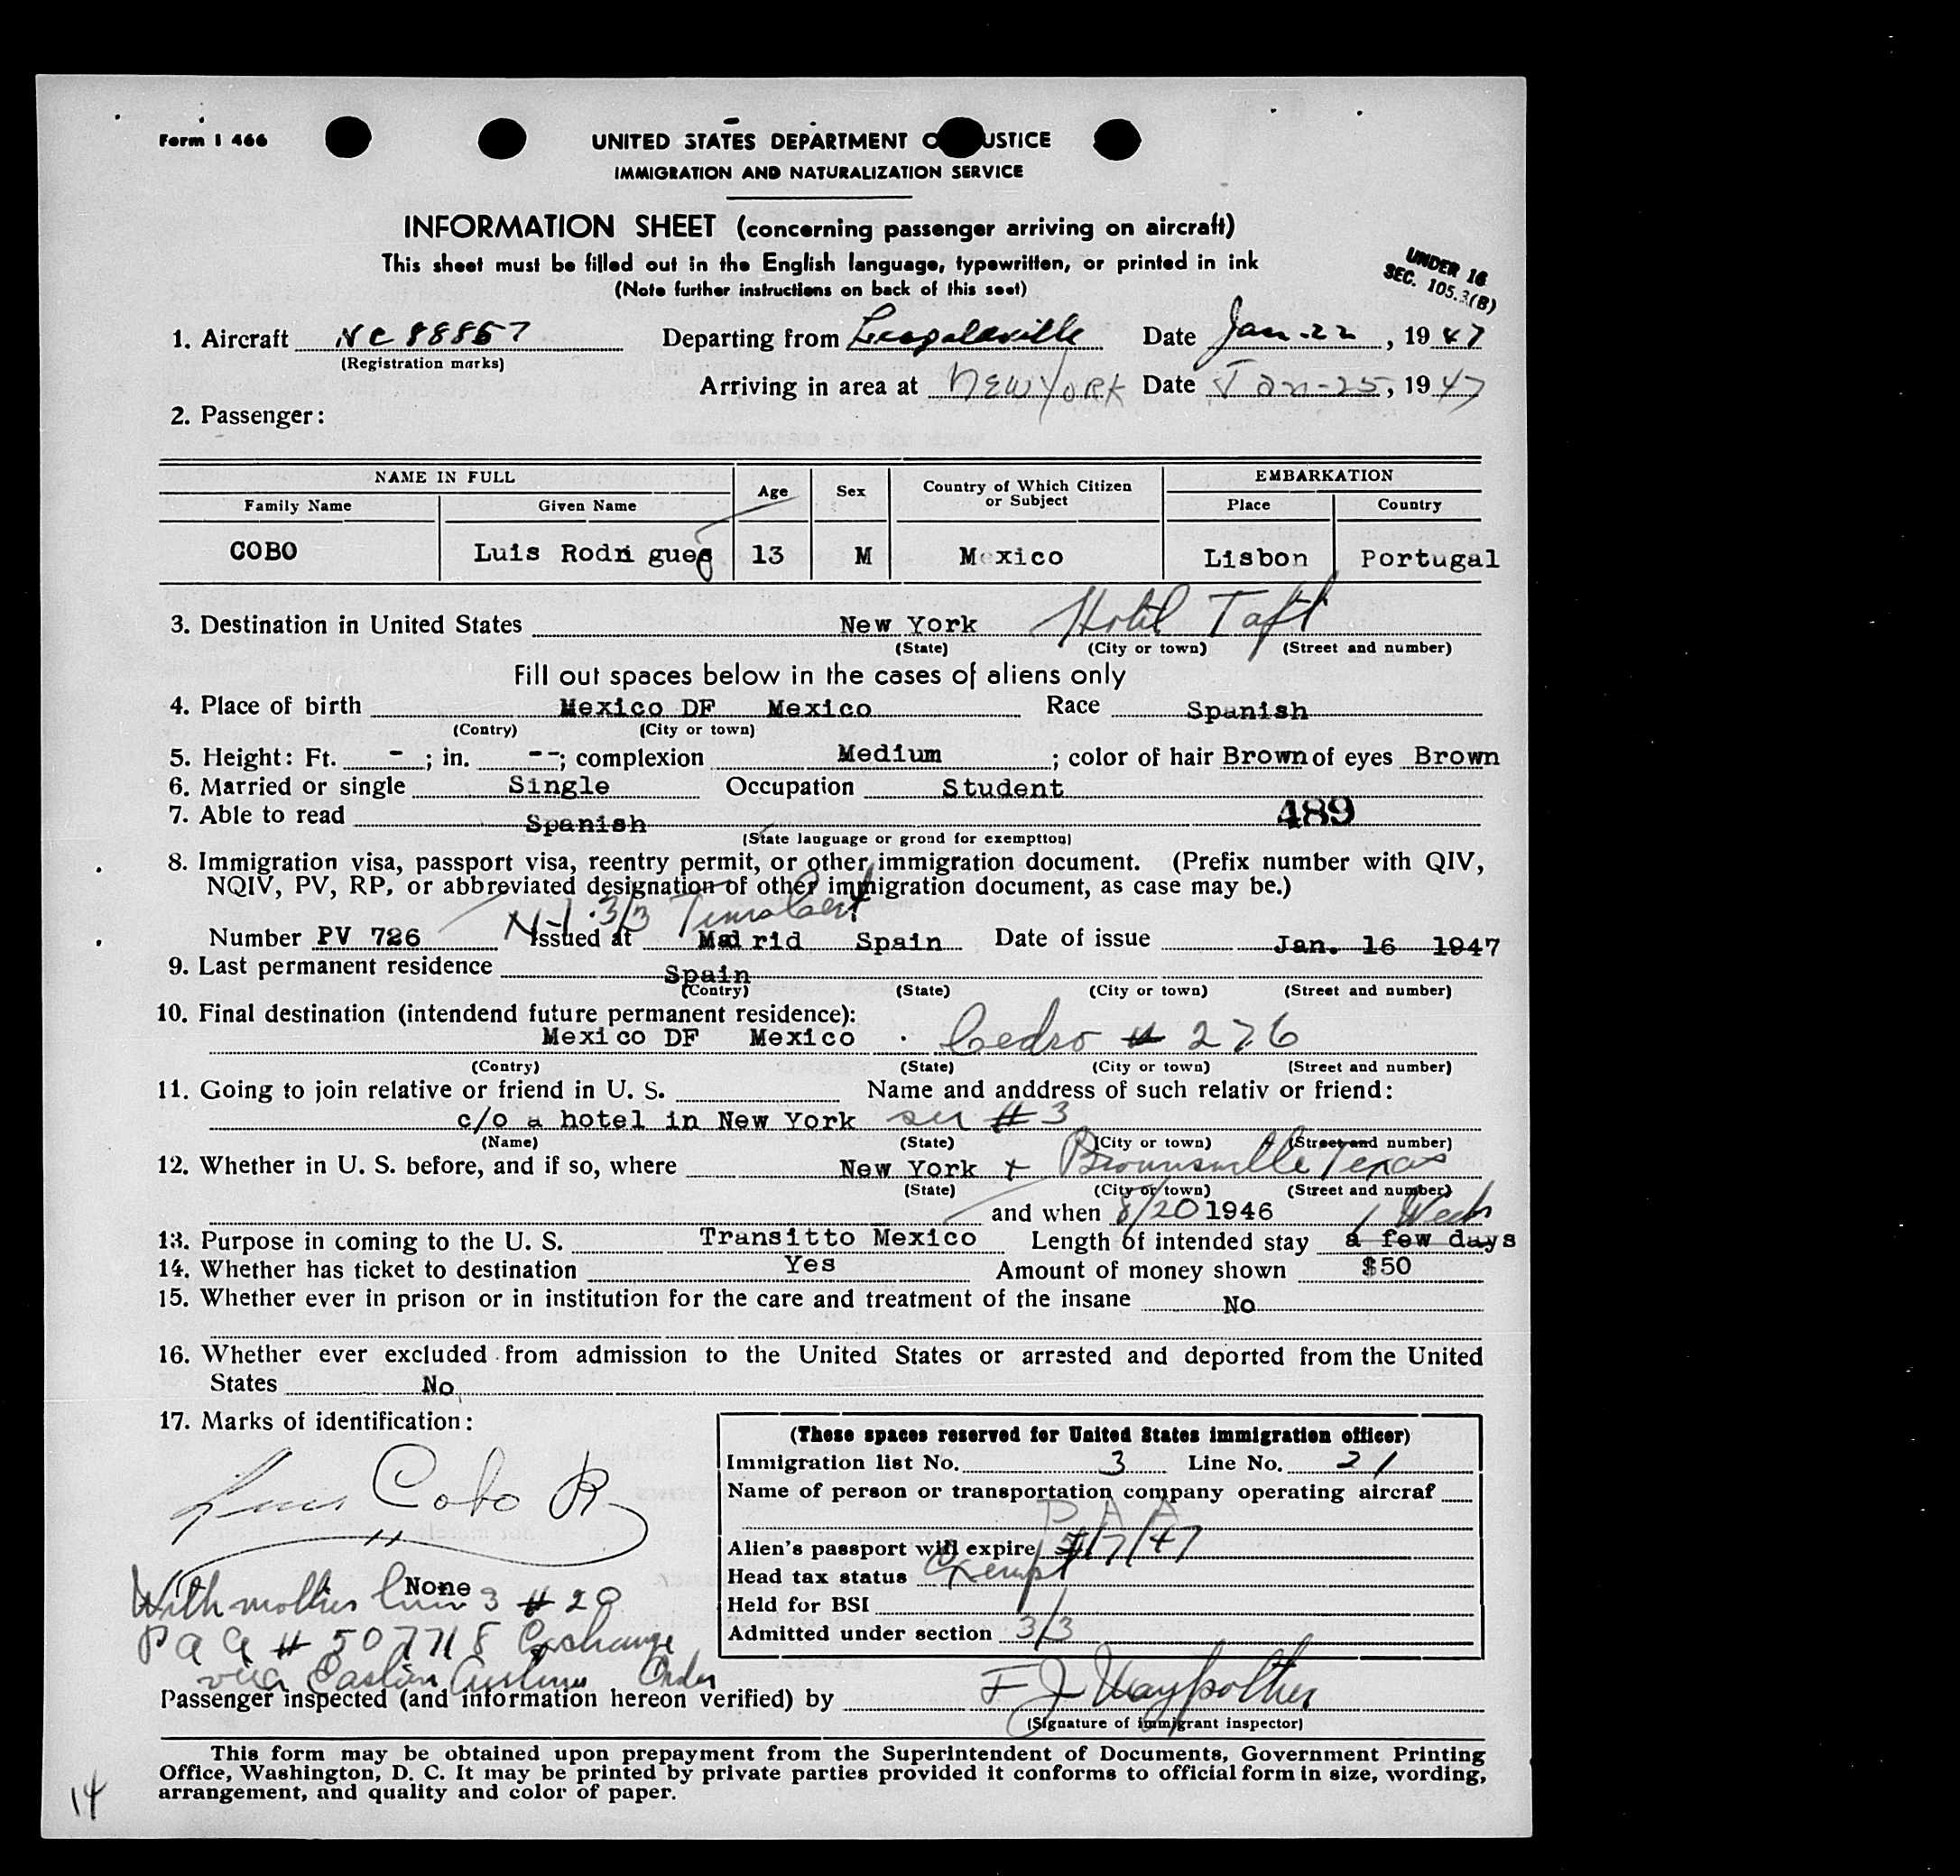 Form I 466
UNITED STATES DEPARTMENT O USTICE
IMMIGRATION AND NATURALIZATION SERVICE
INFORMATION SHEET (concerning passenger arriving on aircraft)
This sheet must be filled out in the English language, typewritten, or printed in ink
(Note further instructions on back of this seet)
UNDER 16
SEC. 105.3(B)
1. Aircraft NC 88857 Departing from Date Jan-22, 1947
(Registration marks)
Arriving in area at New York Date Jan-25, 1947
2. Passenger:
NAME IN FULL Age Sex Country of Which Citizen or Subject EMBARKATION
Family Name Given Name Place Country
COBO Luis Rodri guez 13 M Mexico Lisbon Portugal
3. Destination in United States New York Hotel Taft
(State) (City or town) (Street and number)
Fill out spaces below in the cases of aliens only
4. Place of birth Mexico DF Mexico Race Spanish
(Contry) (City or town)
5. Height: Ft. - ; in. --; complexion Medium ; color of hair Brown of eyes Brown
6. Married or single Single Occupation Student
489
7. Able to read Spanish
(State language or grond for exemptton)
8. Immigration visa, passport visa, reentry permit, or other immigration document. (Prefix number with QIV,
NQIV, PV, RP, or abbreviated designation of other immigration document, as case may be.)
N-1 3/3
Number PV 726 Issued at Madrid Spain Date of issue Jan. 16 1947
9. Last permanent residence Spain
(Contry) (State) (City or town) (Street and number)
10. Final destination (intendend future permanent residence):
Mexico DF Mexico . Cedro # 276
(Contry) (State) (City or town) (Street and number)
11. Going to join relative or friend in U. S. Name and anddress of such relativ or friend:
c/o a hotel in New York see # 3
(Name) (State) (City or town) (Street and number)
12. Whether in U. S. before, and if so, where New York + Brownsville Texas
(State) (City or town) (Street and number)
and when 8/20 1946 1 Week
13. Purpose in coming to the U. S. Transitto Mexico Length of intended stay a few days
14. Whether has ticket to destination Yes Amount of money shown $50
15. Whether ever in prison or in institution for the care and treatment of the insane No
16. Whether ever excluded from admission to the United States or arrested and deported from the United
States No
17. Marks of identification:
Luis Cobo R
None
With mother line 3 # 20
PAA # 507718 Exchange
via Eastern Airlines Order
(These spaces reserved for United States immigration officer)
Immigration list No. 3 Line No. 21
Name of person or transportation company operating aircraf
P A A
Alien's passport will expire /7/47
Head tax status Exempt
Held for BSI
Admitted under section 3/3
Passenger inspected (and information hereon verified) by F J
(Signature of immigrant inspector)
This form may be obtained upon prepayment from the Superintendent of Documents, Government Printing
Office, Washington, D. C. It may be printed by private parties provided it conforms to official form in size, wording,
arrangement, and quality and color of paper.
14